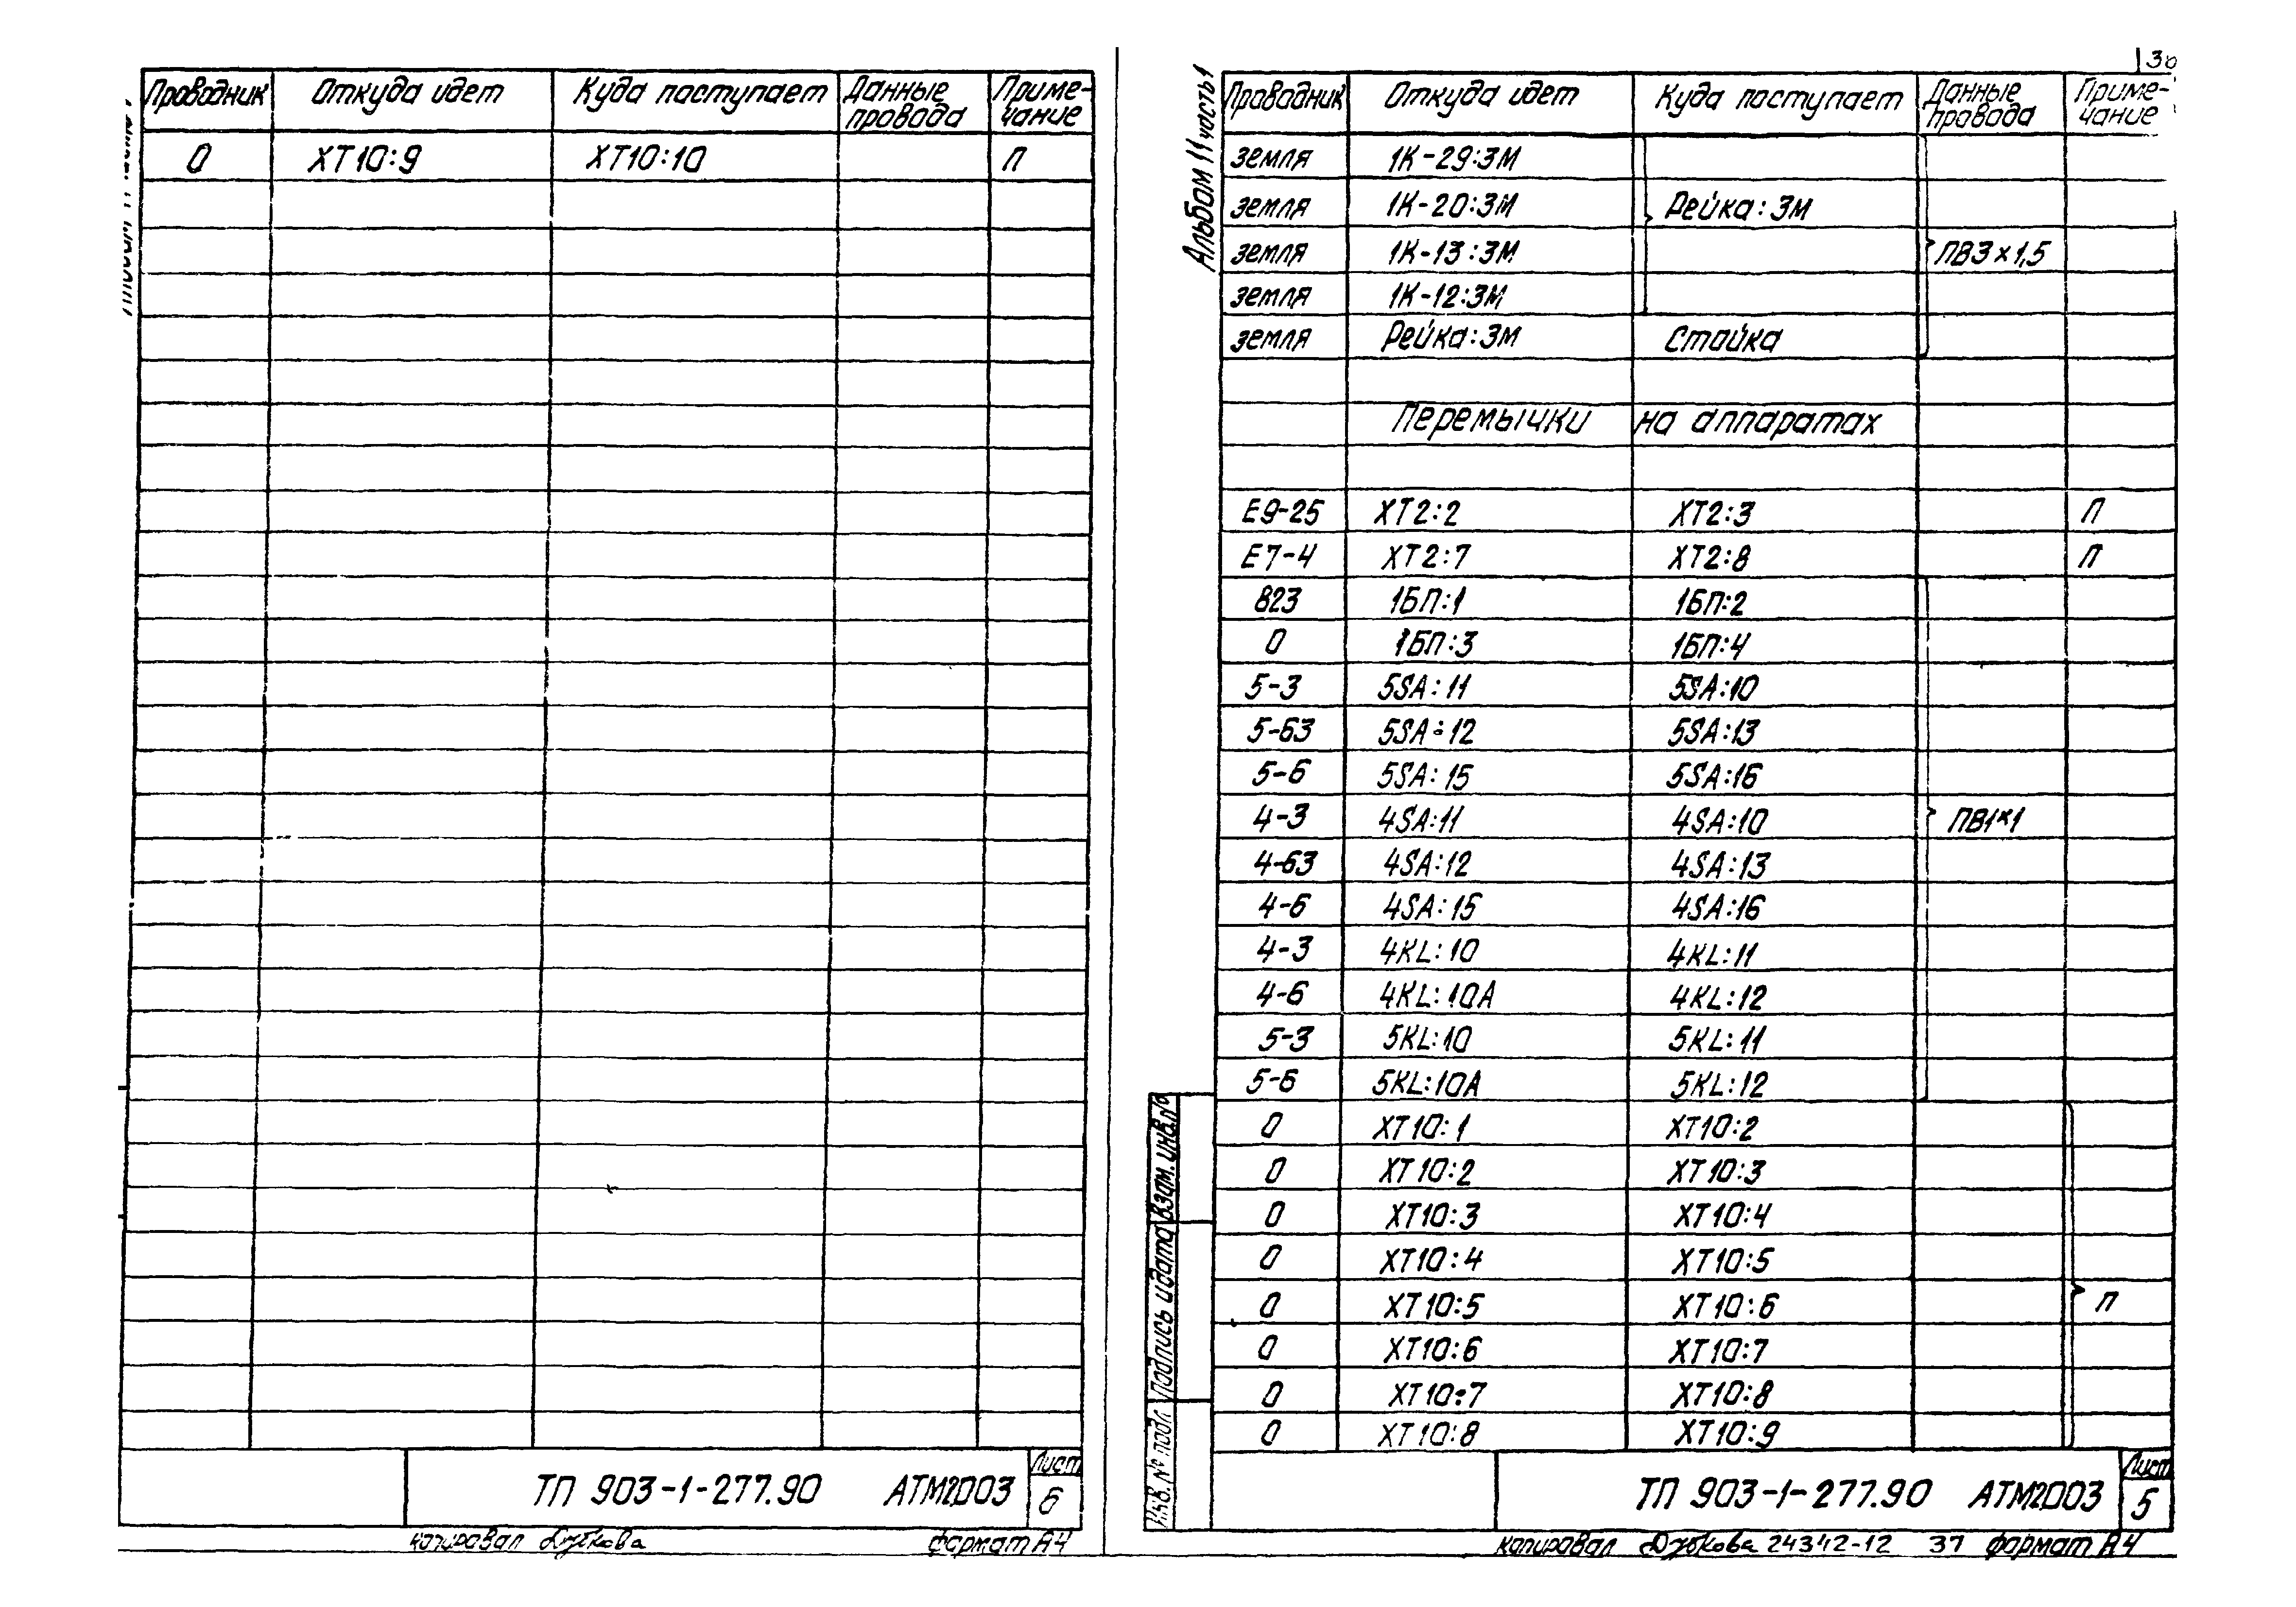 Проводник Откуда идет Куда поступает Данные провода Приме-чание
0 XT10:9 XT10:10 П
ТП 903-1-277.90 АТМ2003 Лист 6
копировал Дубкова формат А4
Альбом 11 часть 1
Проводник Откуда идет Куда поступает Данные провода Приме-чание
земля 1К-29:ЗМ
земля 1К-20:ЗМ Рейка:ЗМ
земля 1К-13:ЗМ ПВ3×1,5
земля 1К-12:ЗМ
земля Рейка:ЗМ Стойка
Перемычки на аппаратах
Е9-25 ХТ2:2 ХТ2:3 П
Е7-4 ХТ2:7 ХТ2:8 П
823 1БП:1 1БП:2
0 1БП:3 1БП:4
5-3 5SA:11 5SA:10
5-63 5SA:12 5SA:13
5-6 5SA:15 5SA:16
4-3 4SA:11 4SA:10 ПВ1×1
4-63 4SA:12 4SA:13
4-6 4SA:15 4SA:16
4-3 4KL:10 4KL:11
4-6 4KL:10A 4KL:12
5-3 5KL:10 5KL:11
5-6 5KL:10A 5KL:12
0 XT10:1 XT10:2
0 XT10:2 XT10:3
0 XT10:3 XT10:4
0 XT10:4 XT10:5
0 XT10:5 XT10:6 П
0 XT10:6 XT10:7
0 XT10:7 XT10:8
0 XT10:8 XT10:9
Инв.№ подл Подпись и дата Взам.инв.№
ТП 903-1-277.90 АТМ2003 Лист 5
копировал Дубкова 24342-12 37 формат А4